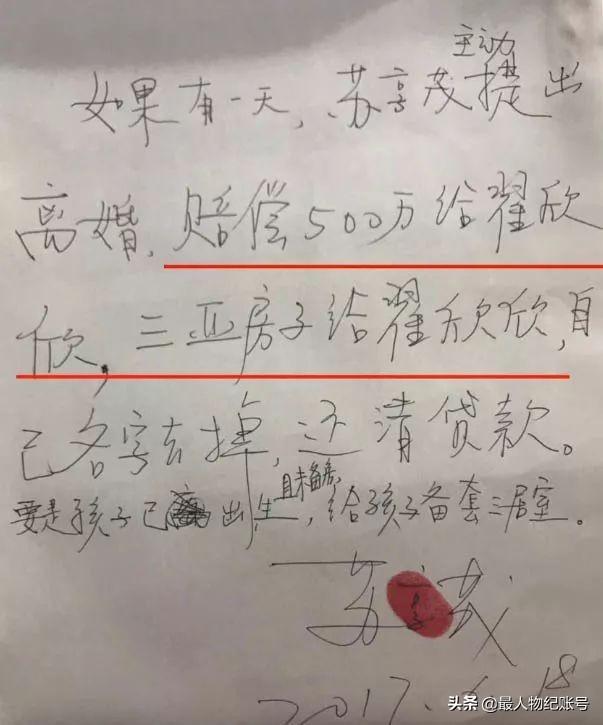 主动
如果有一天，苏享茂提出
离婚，赔偿500万给翟欣
欣，三亚房子给翟欣欣，自
己名字去掉，还清贷款。
且未备房
要是孩子已出生，给孩子备套三居室。
苏享茂
2017.6.18
头条 @最人物纪账号